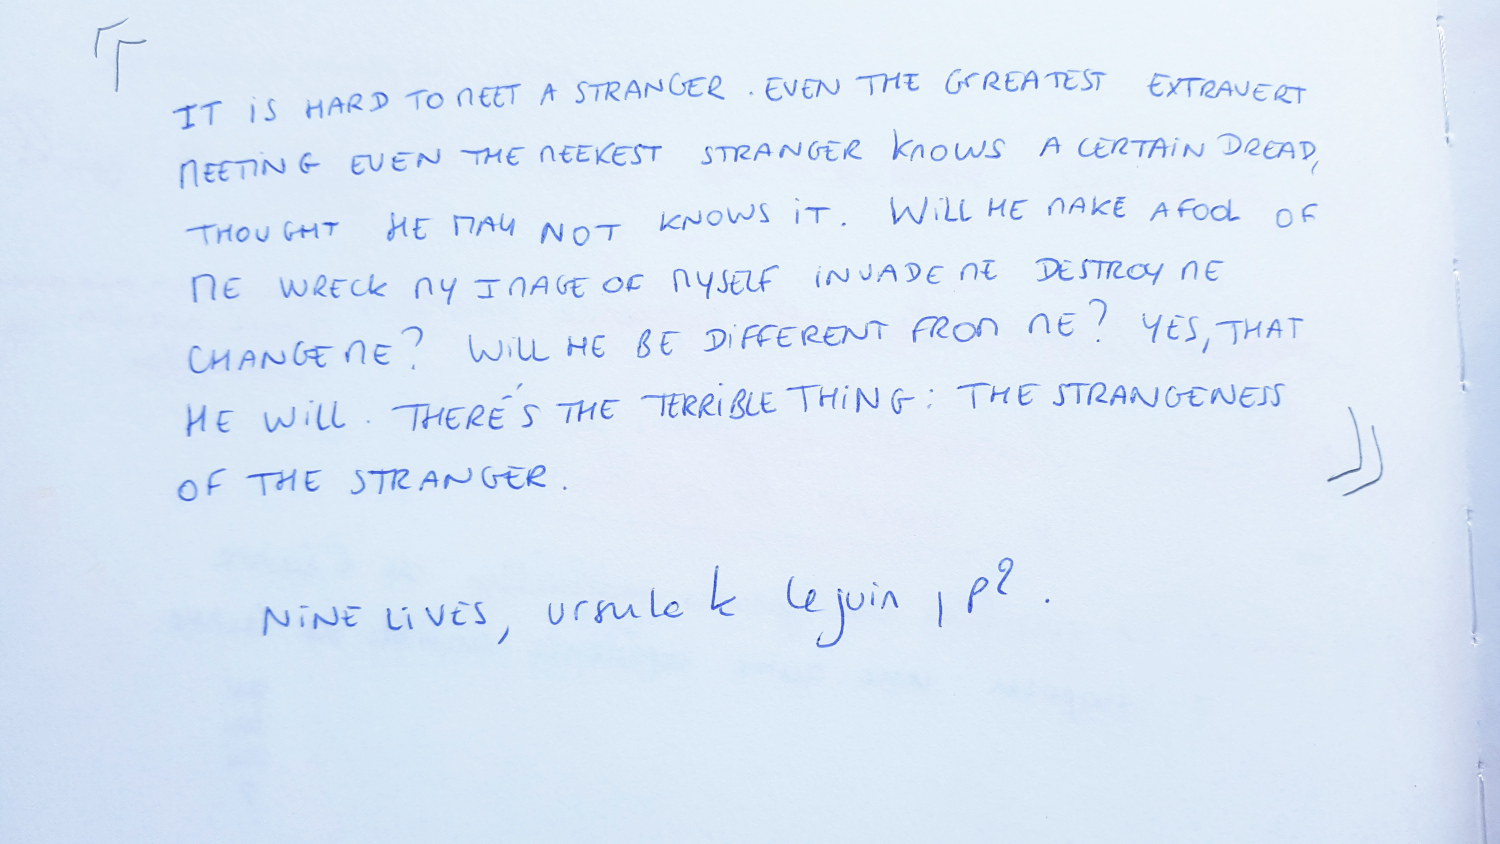 IT IS HARD TO MEET A STRANGER. EVEN THE GREATEST EXTRAVERT
MEETING EVEN THE MEEKEST STRANGER KNOWS A CERTAIN DREAD,
THOUGHT HE MAY NOT KNOWS IT. WILL HE MAKE A FOOL OF
ME WRECK MY IMAGE OF MYSELF INVADE ME DESTROY ME
CHANGE ME? WILL HE BE DIFFERENT FROM ME? YES, THAT
HE WILL. THERE'S THE TERRIBLE THING: THE STRANGENESS
OF THE STRANGER.
NINE LIVES, ursula k le guin, p2.